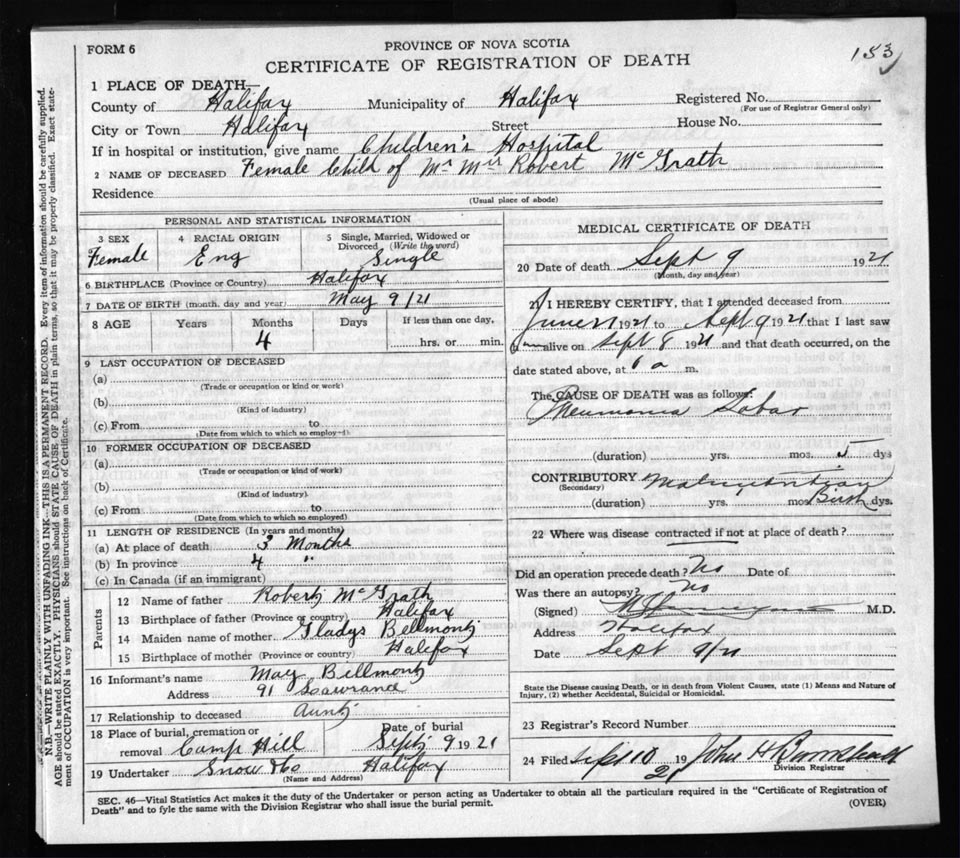 153
FORM 6
PROVINCE OF NOVA SCOTIA
CERTIFICATE OF REGISTRATION OF DEATH
N.B.—WRITE PLAINLY WITH UNFADING INK—THIS IS A PERMANENT RECORD. Every item of information should be carefully supplied.
AGE should be stated EXACTLY. PHYSICIANS should STATE CAUSE OF DEATH in plain terms, so that it may be properly classified. Exact state-
ment of OCCUPATION is very important. See instructions on back of Certificate.
1 PLACE OF DEATH—
County of Halifax Municipality of Halifax Registered No.
(For use of Registrar General only)
City or Town Halifax Street House No.
If in hospital or institution, give name Children's Hospital
2 NAME OF DECEASED Female Child of Mr Mrs Robert McGrath
Residence
(Usual place of abode)
PERSONAL AND STATISTICAL INFORMATION
3 SEX 4 RACIAL ORIGIN 5 Single, Married, Widowed or
Divorced (Write the word)
Female Eng Single
6 BIRTHPLACE (Province or Country) Halifax
7 DATE OF BIRTH (month, day and year) May 9/21
8 AGE Years Months Days If less than one day,
4 hrs. or min.
9 LAST OCCUPATION OF DECEASED
(a)
(Trade or occupation or kind or work)
(b)
(Kind of industry)
(c) From to
(Date from which to which so employ-d)
10 FORMER OCCUPATION OF DECEASED
(a)
(Trade or occupation or kind of work)
(b)
(Kind of industry)
(c) From to
(Date from which to which so employed)
11 LENGTH OF RESIDENCE (In years and months)
(a) At place of death 3 Months
(b) In province 4 "
(c) In Canada (if an immigrant)
Parents
12 Name of father Robert McGrath
13 Birthplace of father (Province or country) Halifax
14 Maiden name of mother Gladys Bellmont
15 Birthplace of mother (Province or country) Halifax
16 Informant's name May Billmont
Address 91
17 Relationship to deceased Aunt
18 Place of burial, cremation or Date of burial
removal Camp Hill Sept 9 1921
19 Undertaker Snow & Co Halifax
(Name and Address)
MEDICAL CERTIFICATE OF DEATH
20 Date of death Sept 9 1921
(Month, day and year)
21 I HEREBY CERTIFY, that I attended deceased from
June 1921 to Sept 9 1921 that I last saw
alive on Sept 8 1921 and that death occurred, on the
date stated above, at 6 a m.
The CAUSE OF DEATH was as follows:
Pneumonia Lobar
(duration) yrs. mos. 5 dys
CONTRIBUTORY Malnutrition
(Secondary)
(duration) yrs. mos Birth dys.
22 Where was disease contracted if not at place of death?
Did an operation precede death? No Date of
Was there an autopsy? No
(Signed) M.D.
Address Halifax
Date Sept 9/21
State the Disease causing Death, or in death from Violent Causes, state (1) Means and Nature of
Injury, (2) whether Accidental, Suicidal or Homicidal.
23 Registrar's Record Number
24 Filed Sept 10 1921 John H
Division Registrar
SEC. 46—Vital Statistics Act makes it the duty of the Undertaker or person acting as Undertaker to obtain all the particulars required in the "Certificate of Registration of
Death" and to fyle the same with the Division Registrar who shall issue the burial permit.
(OVER)